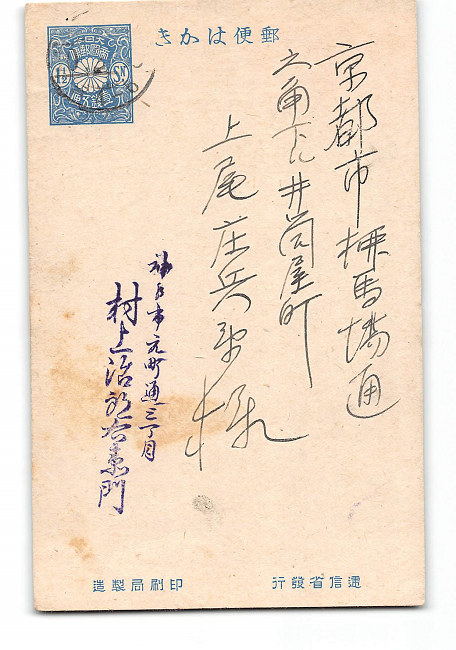 郵便はかき
1½ SN
京都市柳馬場通
六角下ル井筒屋町
上尾庄兵衛様
神戸市元町通三丁目
村上治郎右衛門
遞信省發行
印刷局製造